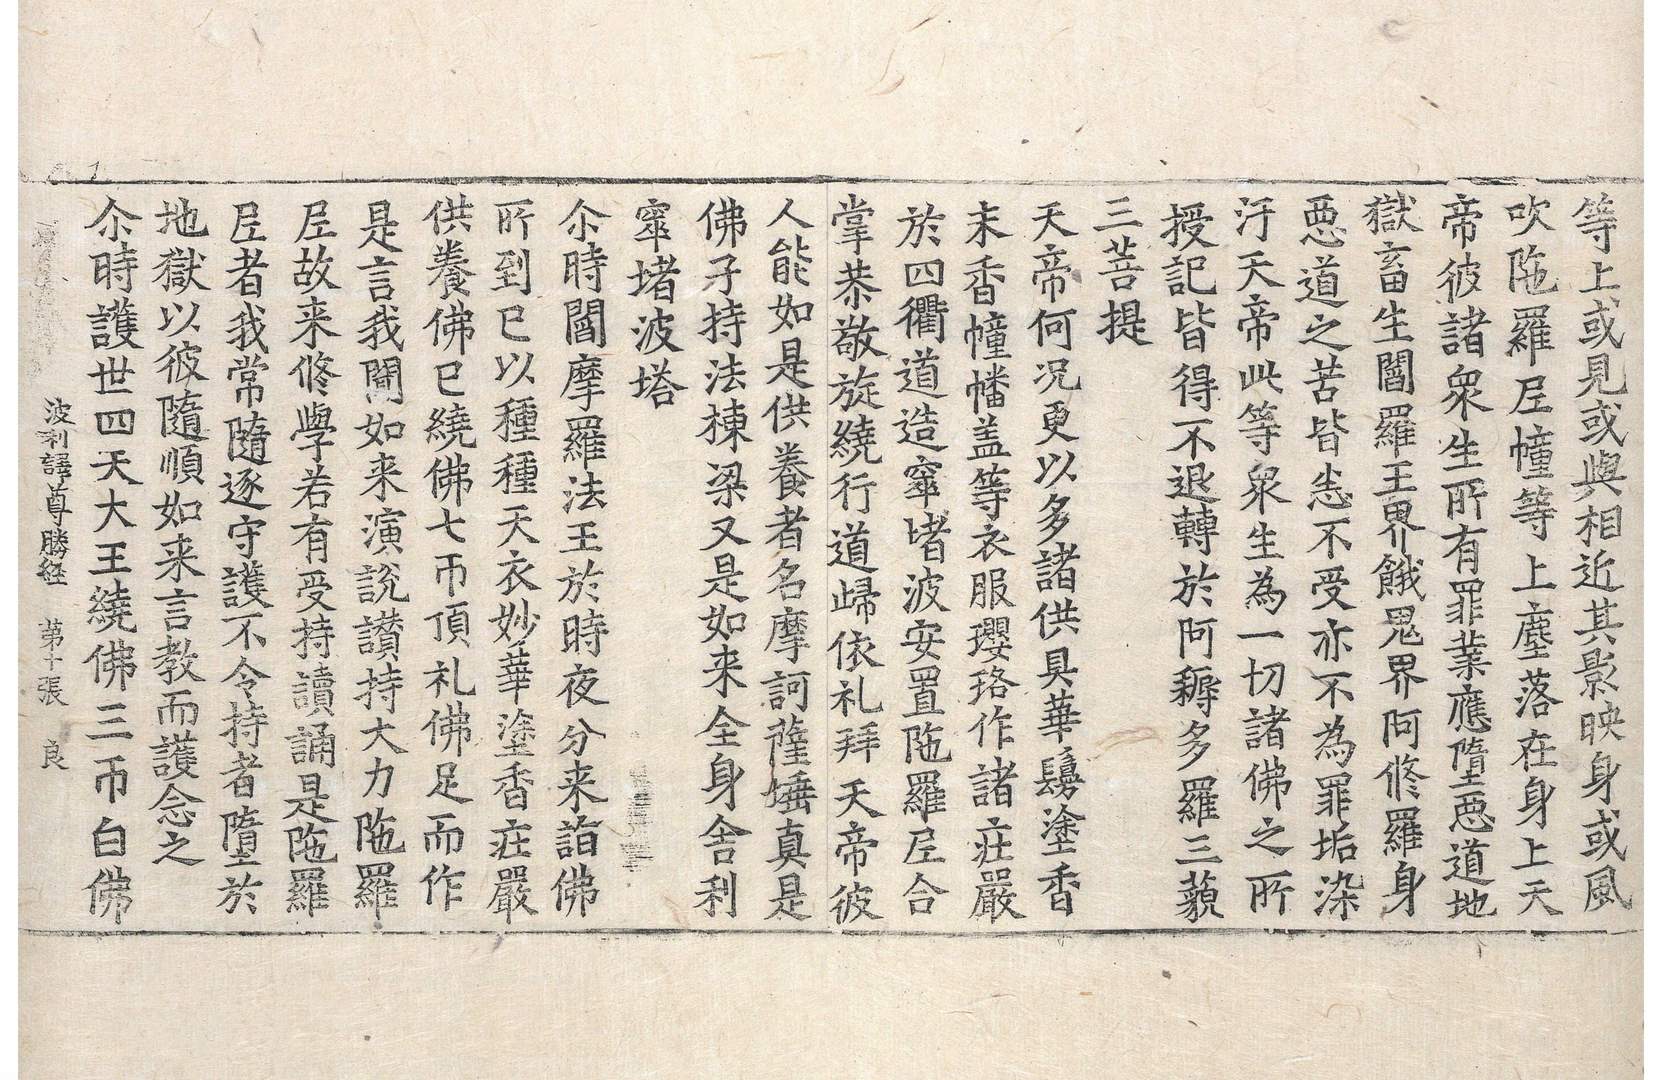 等上或見或與相近其影映身或風
吹陁羅𡰱幢等上塵落在身上天
帝彼諸衆生所有罪業應墮惡道地
獄畜生閻羅王界餓鬼界阿脩羅身
惡道之苦皆悉不受亦不為罪垢染
汙天帝此等衆生為一切諸佛之所
授記皆得不退轉於阿耨多羅三藐
三菩提
天帝何况更以多諸供具華鬘塗香
末香幢幡盖等衣服瓔珞作諸庄嚴
於四衢道造窣堵波安置陁羅𡰱合
掌恭敬旋繞行道歸依礼拜天帝彼
人能如是供養者名摩訶薩埵真是
佛子持法棟梁又是如来全身舍利
窣堵波塔
尒時閻摩羅法王於時夜分来詣佛
所到已以種種天衣妙華塗香庄嚴
供養佛已繞佛七帀頂礼佛足而作
是言我聞如来演說讃持大力陁羅
𡰱故来修學若有受持讀誦是陁羅
𡰱者我常隨逐守護不令持者墮於
地獄以彼隨順如来言教而護念之
尒時護世四天大王繞佛三帀白佛
波利譯尊勝経　第十張　良